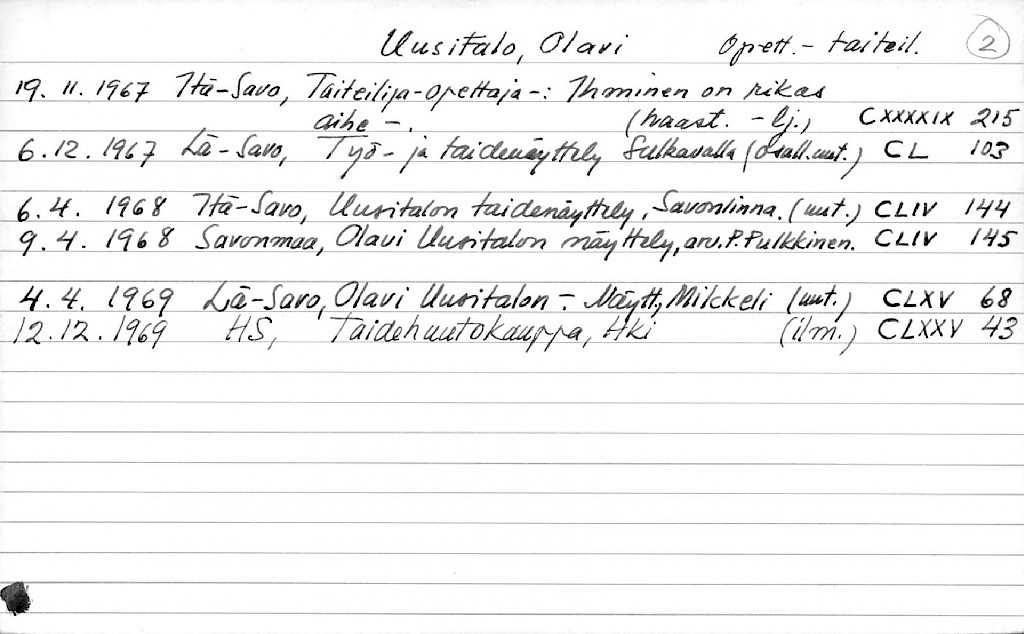 Uusitalo, Olavi Opett.- taiteil. 2
19. 11. 1967 Itä-Savo, Taiteilija-opettaja-: Ihminen on rikas
aihe -. (haast. - lj.) CXXXXIX 215
6.12. 1967 Lä-Savo, Työ- ja taidenäyttely Sulkavalla (osall.uut.) CL 103
6. 4. 1968 Itä-Savo, Uusitalon taidenäyttely, Savonlinna. (uut.) CLIV 144
9. 4. 1968 Savonmaa, Olavi Uusitalon näyttely, arv. P. Pulkkinen. CLIV 145
4. 4. 1969 Lä-Savo, Olavi Uusitalon - Näytt, Mikkeli (uut.) CLXV 68
12.12.1969 HS, Taidehuutokauppa, Hki (ilm.) CLXXV 43